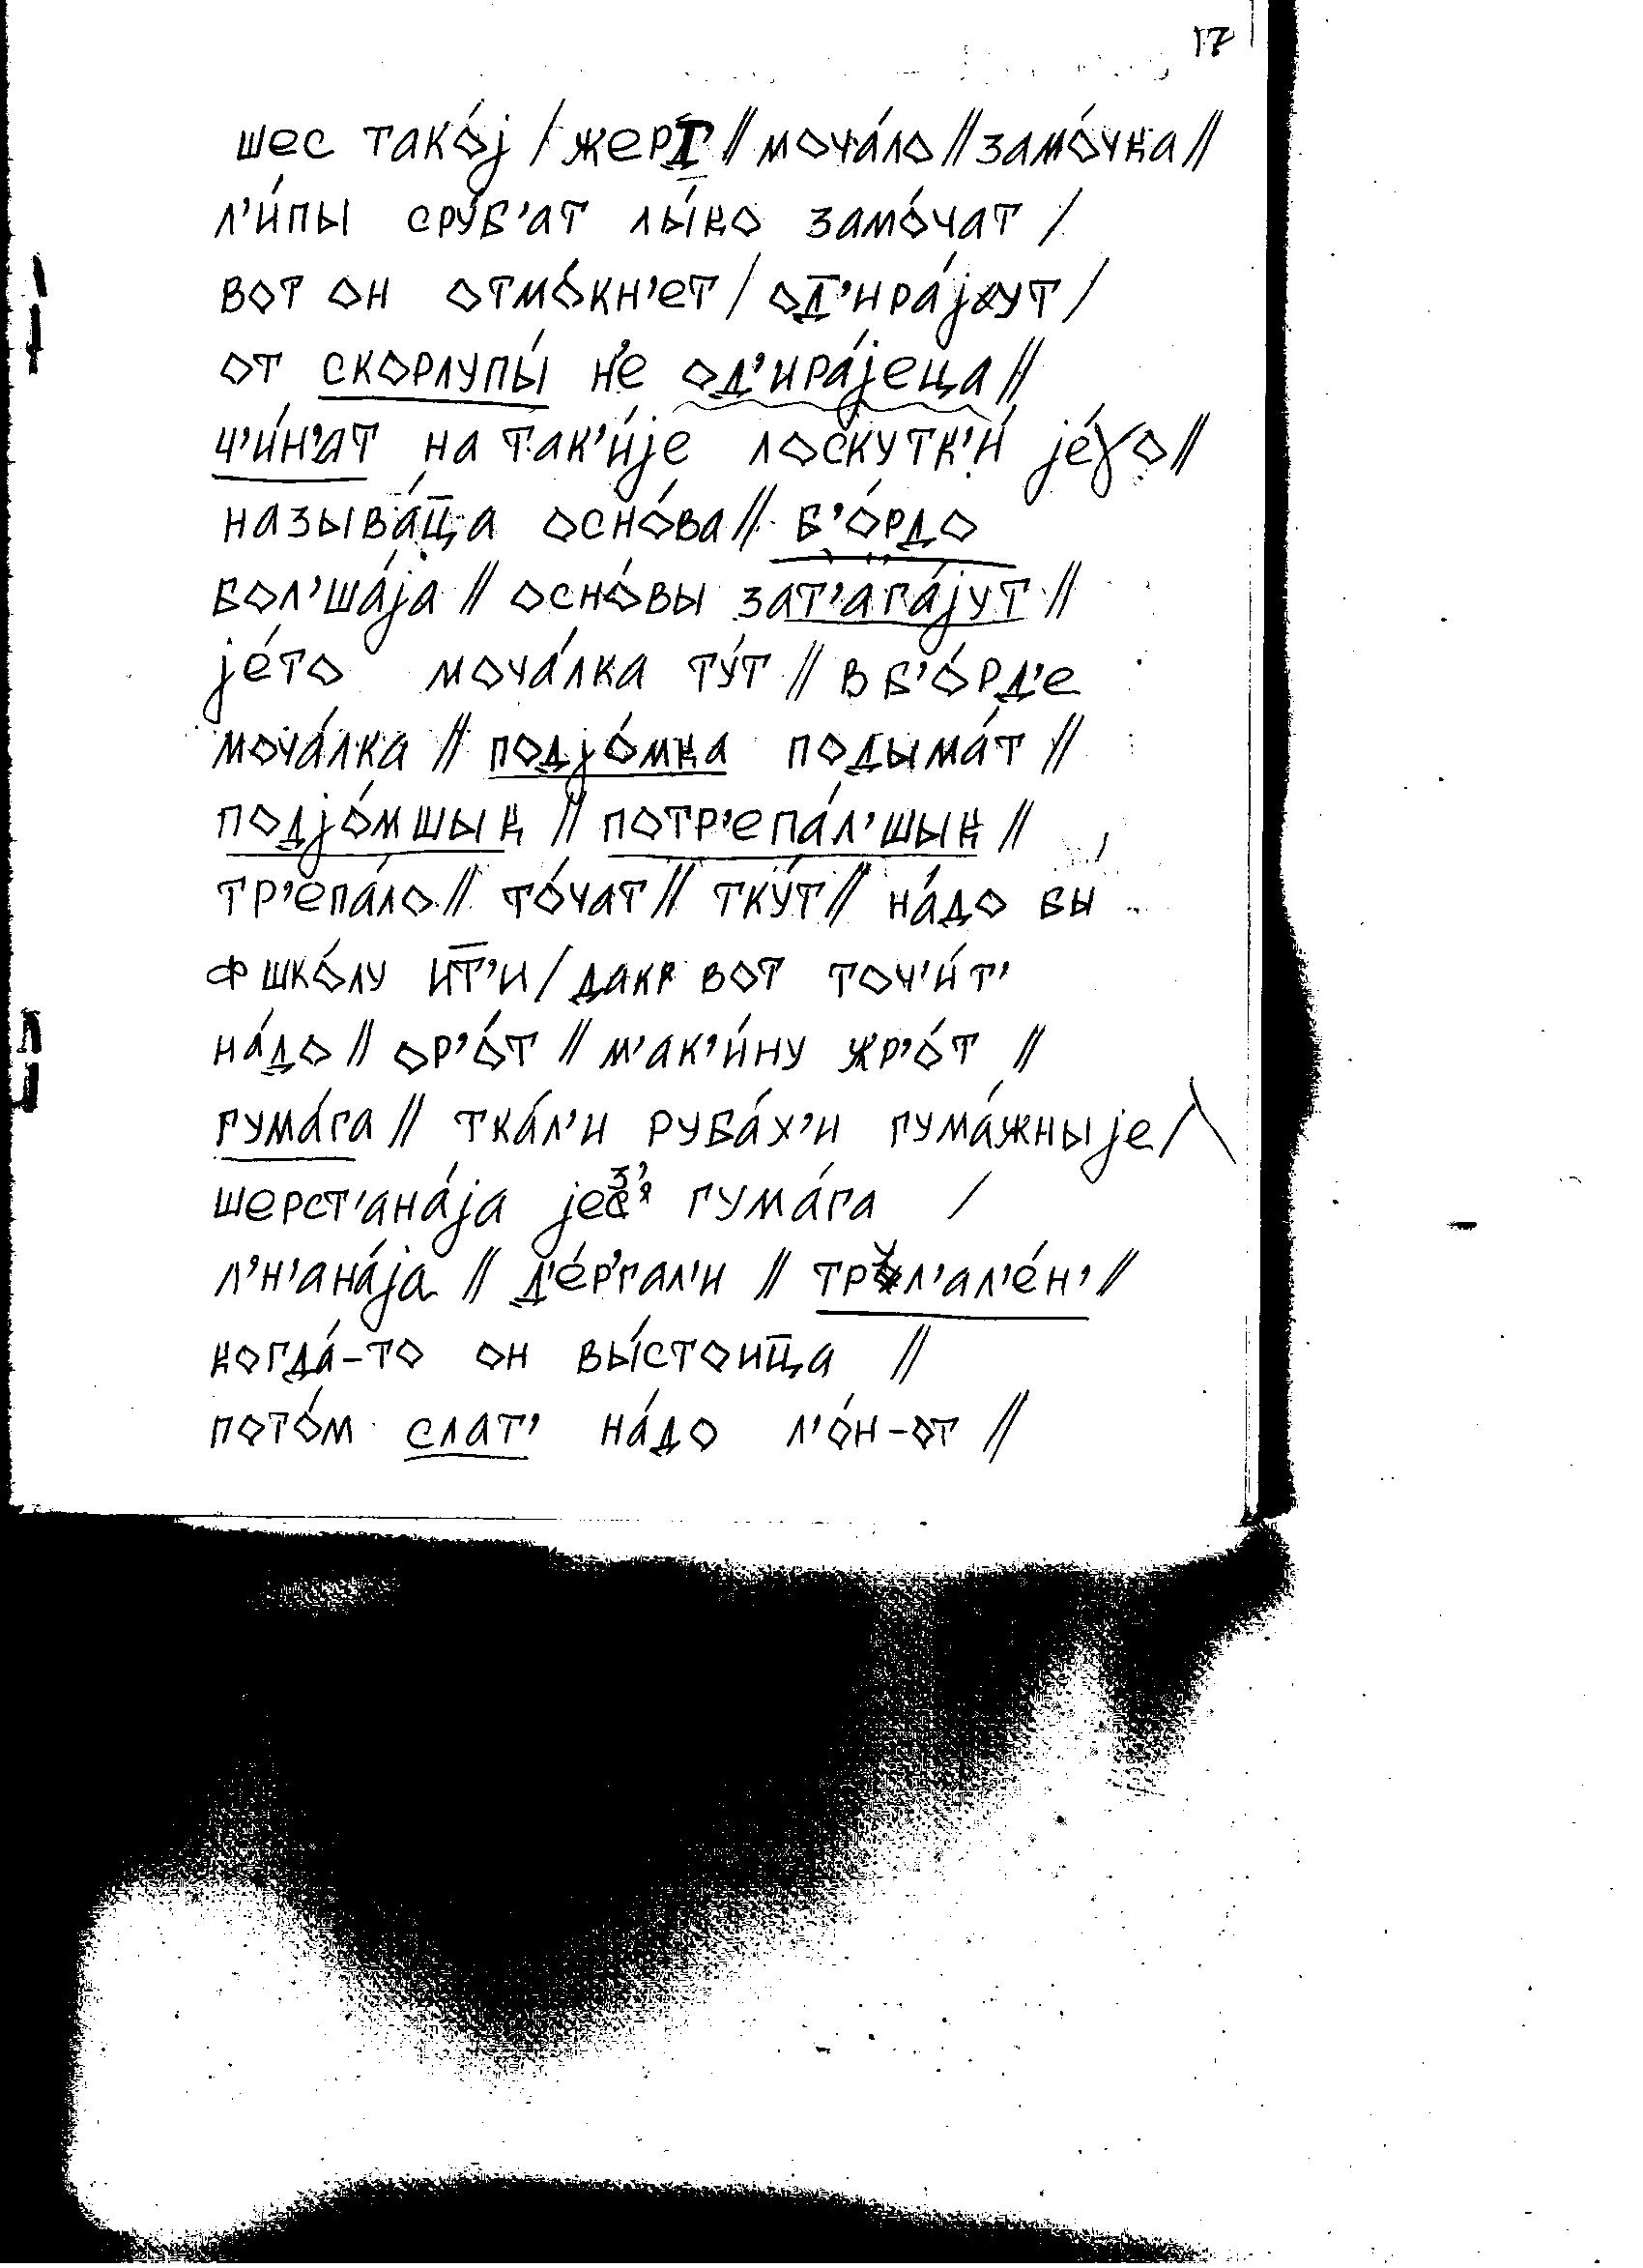 17
шес тако́j / жерт // моча́ло // замо́чка //
л'и́пы сру́б'ат лы́ко замо́чат /
вот он отмо́кн'ет / од̄'ира́jут /
от скорлупы́ н'е од'ира́jеца //
ч'и́н'ат на так'и́jе лоскутк'и́ jе́γо //
называ́ц̄а осно́ва // б'о́рдо
бол'ша́jа // осно́вы зат'ага́jут //
jе́то моча́лка ту́т // в б'о́рд'е
моча́лка // подjо́мка подыма́т //
подjо́мшык // потр'епа́л'шык //
тр'епа́ло // то́чат // тку́т // на́до бы
ф шко́лу ит̄'и / дак вот точ'и́т'
на́до // ор'о́т // м'ак'и́ну жр'о́т //
гума́га // тка́л'и руба́х'и гума́жныjе /
шерст'ана́jа jез' гума́га /
л'н'ана́jа // д'е́ргал'и // трул'ал'е́н' //
когда́-то он вы́стоиц̄а //
пото́м слат' на́до л'о́н-от //